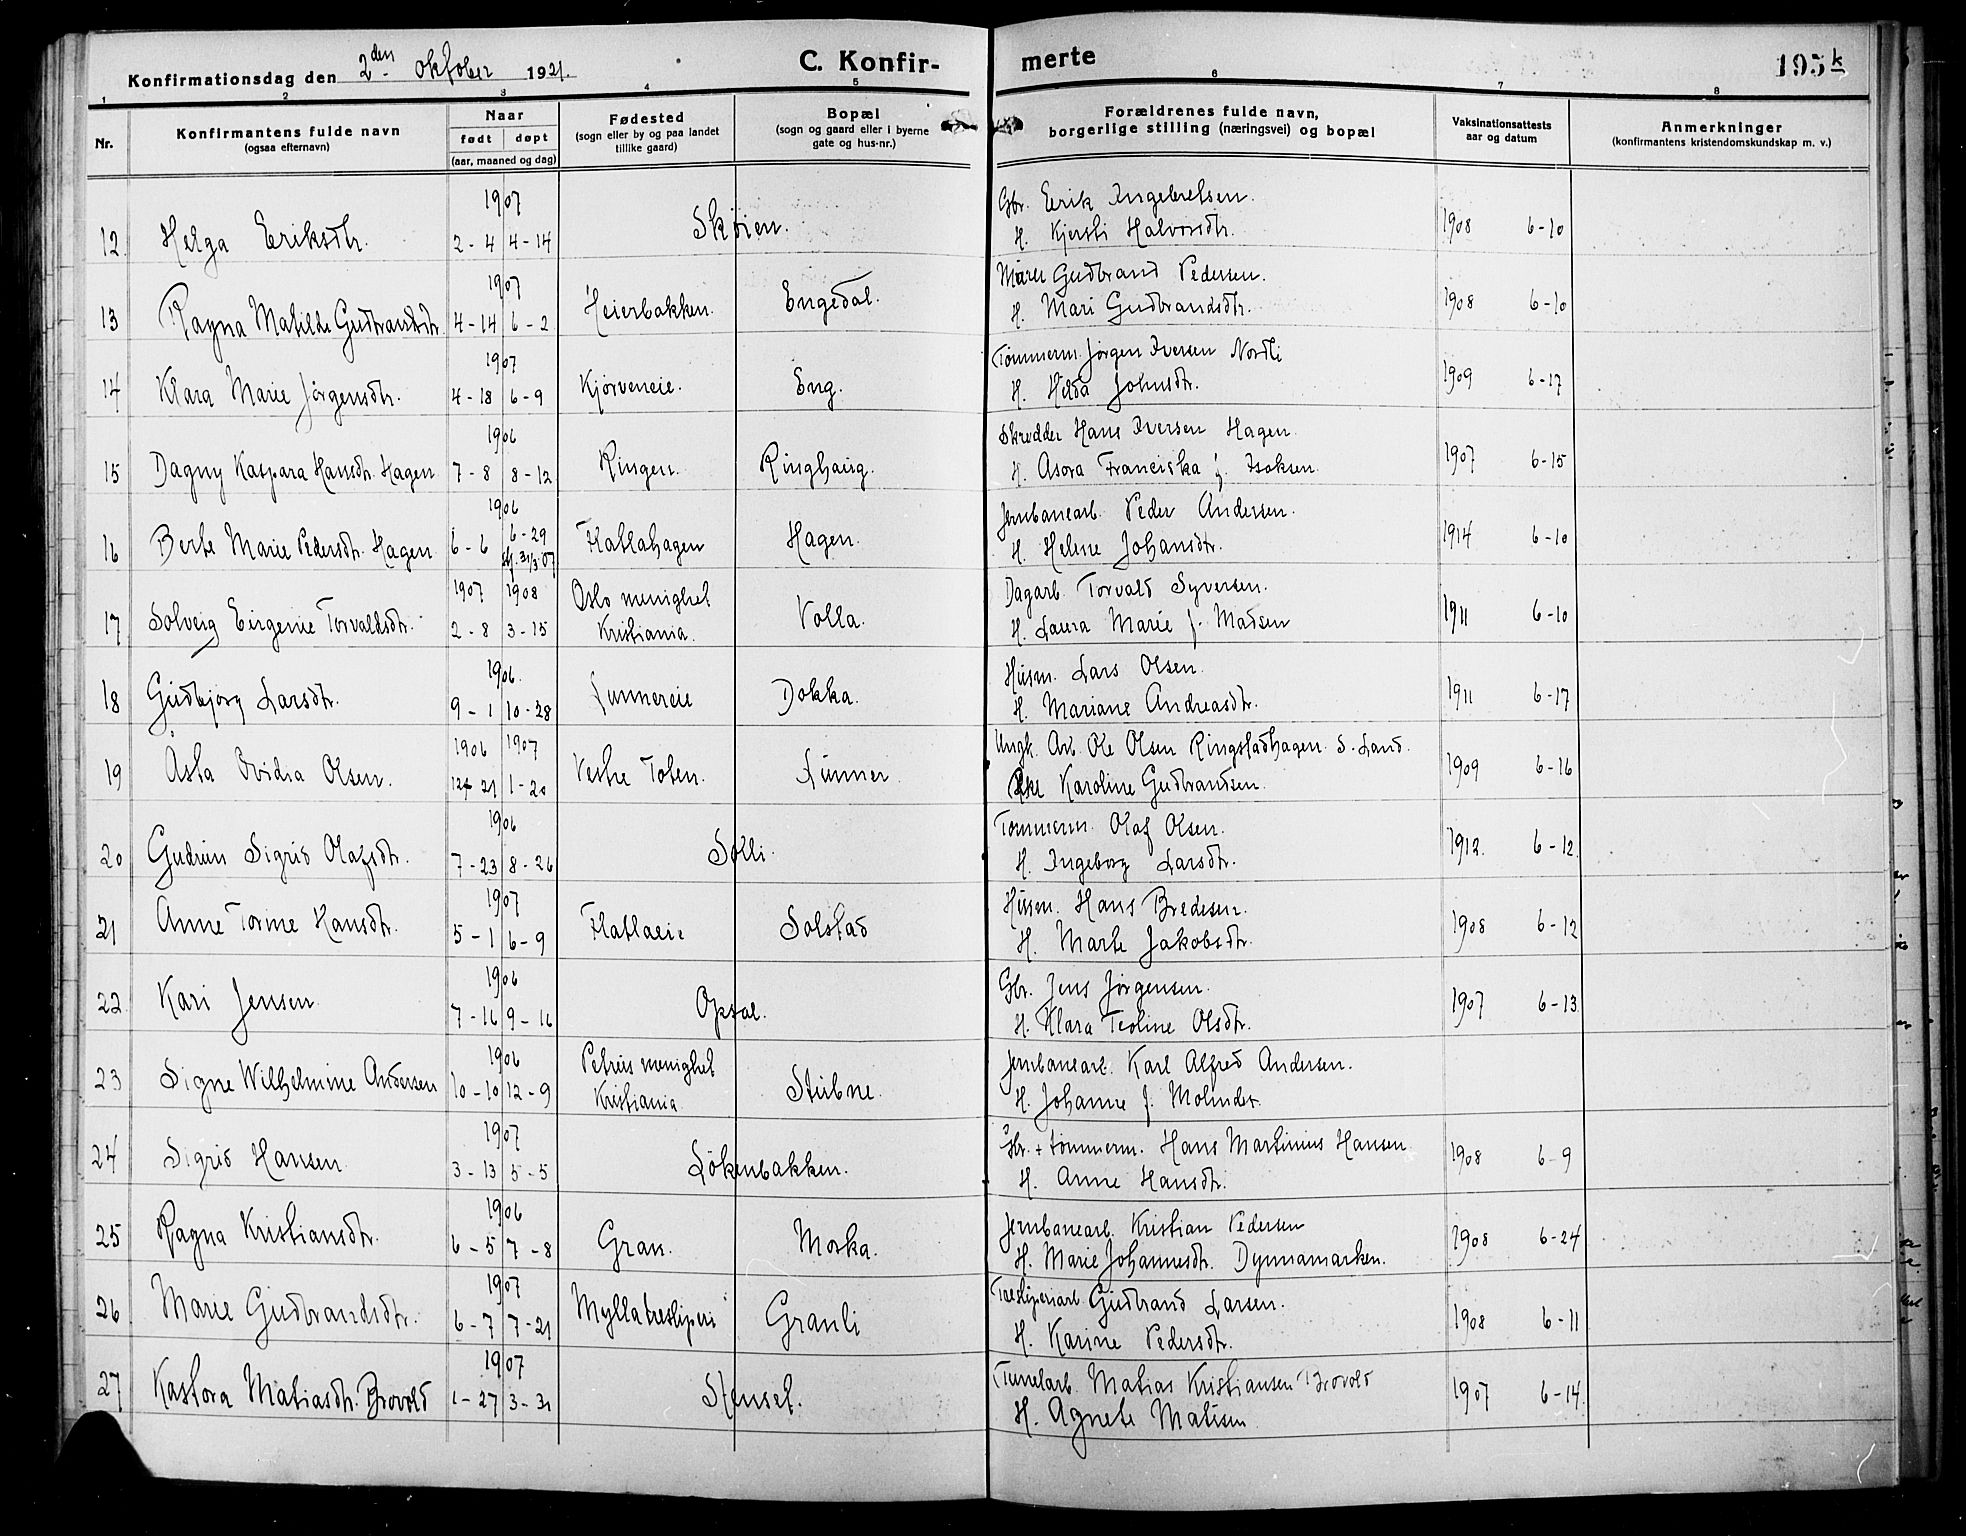 Konfirmationsdag den 2den oktober 1921.
C. Konfir- merte
195 k
1 2 3 4 5 6 7 8
Nr.
Konfirmantens fulde navn
(ogsaa efternavn)
Naar
født døpt
(aar, maaned og dag)
Fødested
(sogn eller by og paa landet
tillike gaard)
Bopæl
(sogn og gaard eller i byerne
gate og hus-nr.)
Forældrenes fulde navn,
borgerlige stilling (næringsvei) og bopæl
Vaksinationsattests
aar og datum
Anmerkninger
(konfirmantens kristendomskundskap m. v.)
1907 Gbr. Erik Ingebretsen.
12 Helga Eriksdtr. 2-4 4-14 Skøien. H. Kjersti Halvorsdtr. 1908 6-10
1907 Murer Gudbrand Pedersen.
13 Ragna Matilde Gudbrandsdtr. 4-14 6-2 Heierbakken. Engedal. H. Mari Gudbrandsdtr. 1908 6-10
1907 Tømmerm. Jørgen Iversen Nordli
14 Klara Marie Jørgensdtr. 4-18 6-9 Kjørveneie. Eng. H. Hilda Johnsdtr. 1909 6-17
1906 Skredder Hans Iversen Hagen.
15 Dagny Kaspara Hansdtr. Hagen 7-8 8-12 Ringen. Ringhaug. H. Asora Franciska f. Isaksen. 1907 6-15
1906 Jernbanearb. Peder Andersen.
16 Berte Marie Pedersdtr. Hagen 6-6 6-29 31/3 07 Flatlahagen Hagen. H. Helene Johansdtr. 1914 6-10
1907 1908 Oslo menighet Dagarb. Torvald Syversen.
17 Solveig Eugenie Torvaldsdtr. 2-8 3-15 Kristiania. Volla. H. Laura Marie f. Madsen 1911 6-10
1906. Husm. Lars Olsen.
18 Gudbjørg Larsdtr. 9-1 10-28 Lunnereie Dokka. H. Mariane Andreasdtr. 1911 6-17
1906 1907 Ungk. Arb. Ole Olsen Ringstadhagen S. Land.
19 Åsta Ovidia Olsen. 12-21 1-20 Vestre Toten. Lunner. Pike Karoline Gudbrandsen. 1909 6-16
1906 Tømmerm. Olaf Olsen.
20 Gudrun Sigrid Olafsdtr. 7-23 8-26 Solli. H. Ingeborg Larsdtr. 1912. 6-12.
1907 Husm. Hans Bredesen.
21 Anne Torine Hansdtr. 5-1 6-9 Flatlaeie Solstad H. Marte Jakobsdtr. 1908 6-12
1906 Gbr. Jens Jørgensen.
22 Kari Jensen 7-16 9-16 Opsal. H. Klara Teoline Olsdtr. 1907 6-13
1906 Petrus menighet Jernbanearb. Karl Alfred Andersen.
23 Signe Wilhelmine Andersen 10-10 12-9 Kristiania. Stubne. H. Johanne f. Molinder.
1907 Gbr. + tømmerm. Hans Martinius Hansen
24 Sigrid Hansen 3-13 5-5 Løkenbakken. H. Anne Hansdtr. 1908 6-9
1906 Jernbanearb. Kristian Pedersen
25 Ragna Kristiansdtr. 6-5 7-8 Gran. Morka. H. Marie Johannesdtr. Dynnamarken. 1908 6-24
1907 Tresliperiarb. Gudbrand Larsen.
26 Marie Gudbrandsdtr. 6-7 7-21 Mylla tresliperi Granli H. Karine Pedersdtr. 1908 6-11
1907 Tunnelarb. Matias Kristiansen Brovold
27 Kastora Matiasdtr. Brovold 1-27 3-31 Stensel. H. Agnete Matisen 1907 6-14.